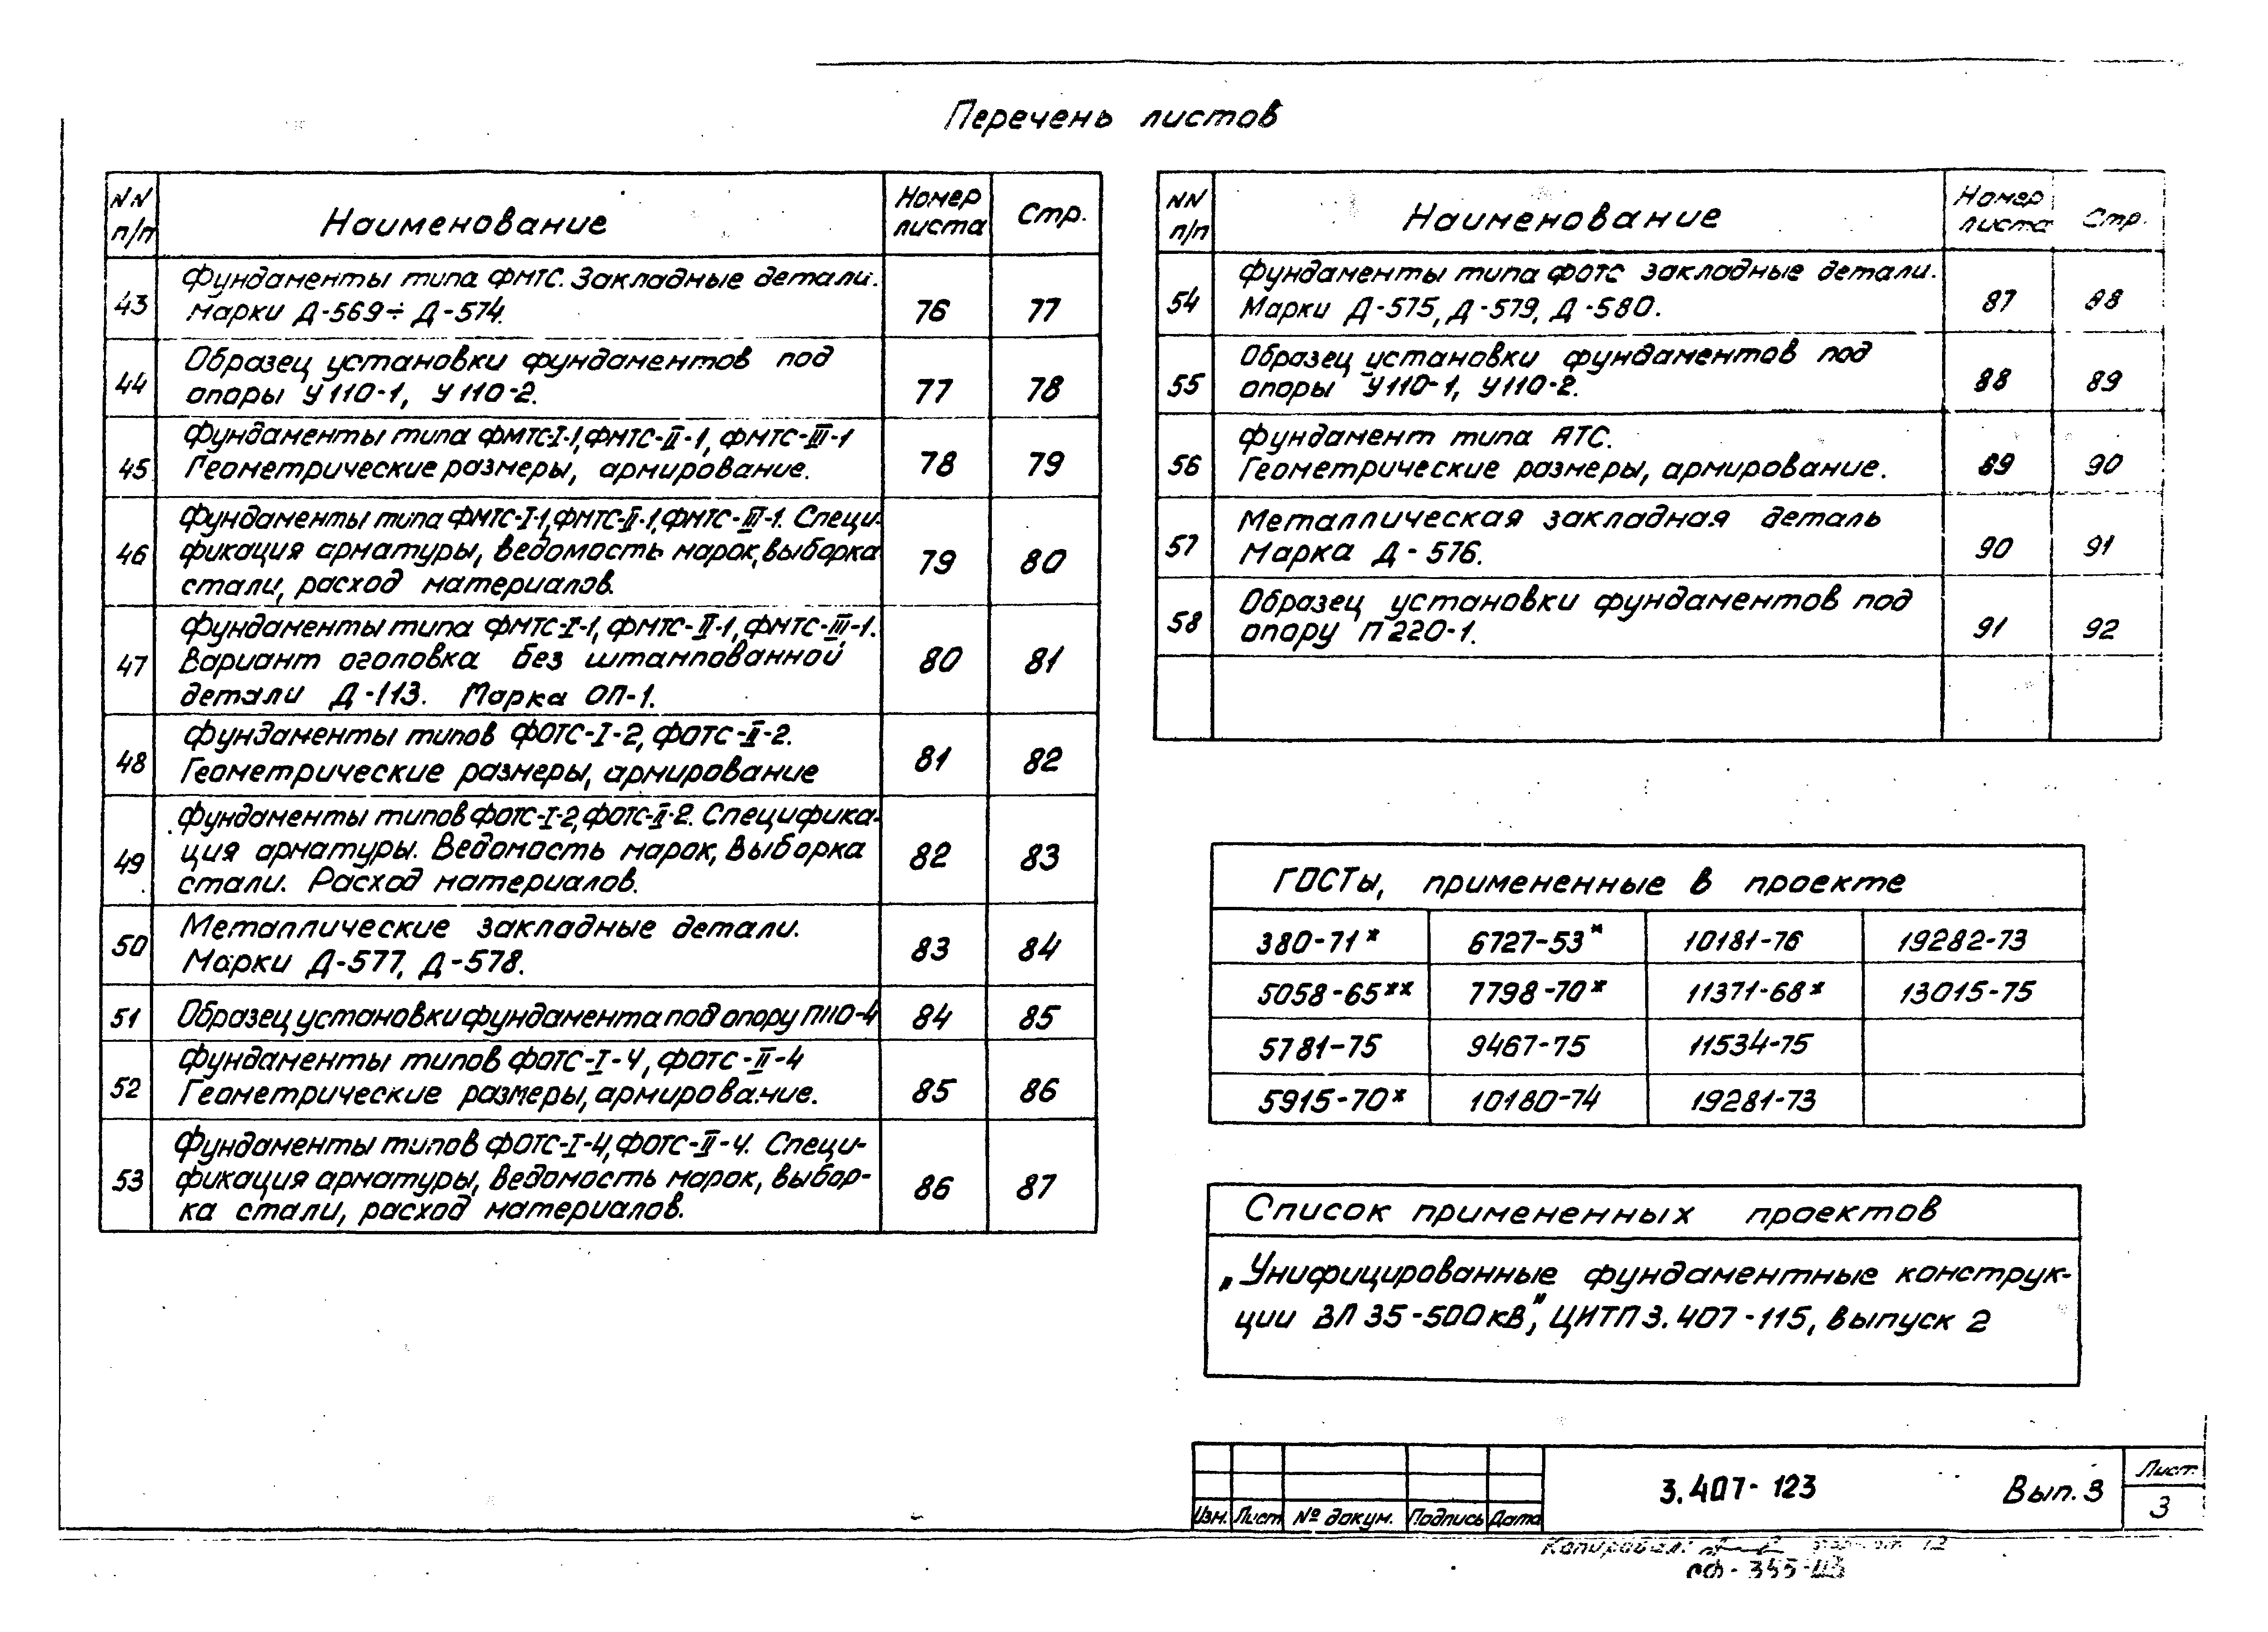 Перечень листов
NN
п/п
Наименование
Номер
листа
Стр.
43
Фундаменты типа ФМТС. Закладные детали.
Марки Д-569÷Д-574.
76
77
44
Образец установки фундаментов под
опоры У110-1, У110-2.
77
78
45
Фундаменты типа ФМТС-I-1, ФМТС-II-1, ФМТС-III-1
Геометрические размеры, армирование.
78
79
46
Фундаменты типа ФМТС-I-1, ФМТС-II-1, ФМТС-III-1. Специ-
фикация арматуры, ведомость марок, выборка
стали, расход материалов.
79
80
47
Фундаменты типа ФМТС-I-1, ФМТС-II-1, ФМТС-III-1.
Вариант оголовка без штампованной
детали Д-113. Марка ОП-1.
80
81
48
Фундаменты типов ФОТС-I-2, ФОТС-II-2.
Геометрические размеры, армирование
81
82
49
Фундаменты типов ФОТС-I-2, ФОТС-II-2. Специфика-
ция арматуры. Ведомость марок, выборка
стали. Расход материалов.
82
83
50
Металлические закладные детали.
Марки Д-577, Д-578.
83
84
51
Образец установки фундамента под опору П110-4
84
85
52
Фундаменты типов ФОТС-I-4, ФОТС-II-4
Геометрические размеры, армирование.
85
86
53
Фундаменты типов ФОТС-I-4, ФОТС-II-4. Специ-
фикация арматуры, ведомость марок, выбор-
ка стали, расход материалов.
86
87
NN
п/п
Наименование
Номер
листа
Стр.
54
Фундаменты типа ФОТС закладные детали.
Марки Д-575, Д-579, Д-580.
87
88
55
Образец установки фундаментов под
опоры У110-1, У110-2.
88
89
56
Фундамент типа АТС.
Геометрические размеры, армирование.
89
90
57
Металлическая закладная деталь
Марка Д-576.
90
91
58
Образец установки фундаментов под
опору П220-1.
91
92
ГОСТы, примененные в проекте
380-71* 6727-53* 10181-76 19282-73
5058-65** 7798-70* 11371-68* 13015-75
5781-75 9467-75 11534-75
5915-70* 10180-74 19281-73
Список примененных проектов
„Унифицированные фундаментные конструк-
ции ВЛ 35-500кВ", ЦИТП 3.407-115, выпуск 2
3.407-123 Вып. 3
Лист
3
Изм. Лист № докум. Подпись Дата
Копировал: 12